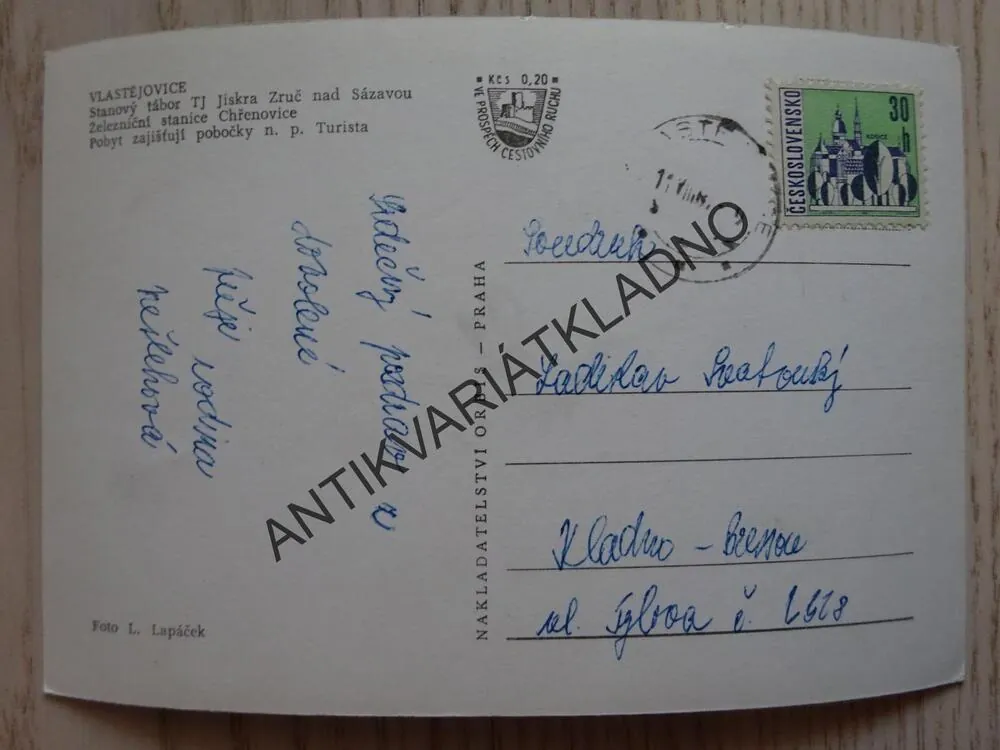 VLASTĚJOVICE
Stanový tábor TJ Jiskra Zruč nad Sázavou
Železniční stanice Chřenovice
Pobyt zajišťují pobočky n. p. Turista
Kčs 0,20
VE PROSPĚCH CESTOVNÍHO RUCHU
ČESKOSLOVENSKO
30 h
KOŠICE
Srdečný pozdrav z
dovolené
přeje rodina
NAKLADATELSTVÍ ORBIS – PRAHA
Soudruh
Ladislav
Kladno –
ul. č.
Foto L. Lapáček
ANTIKVARIÁTKLADNO